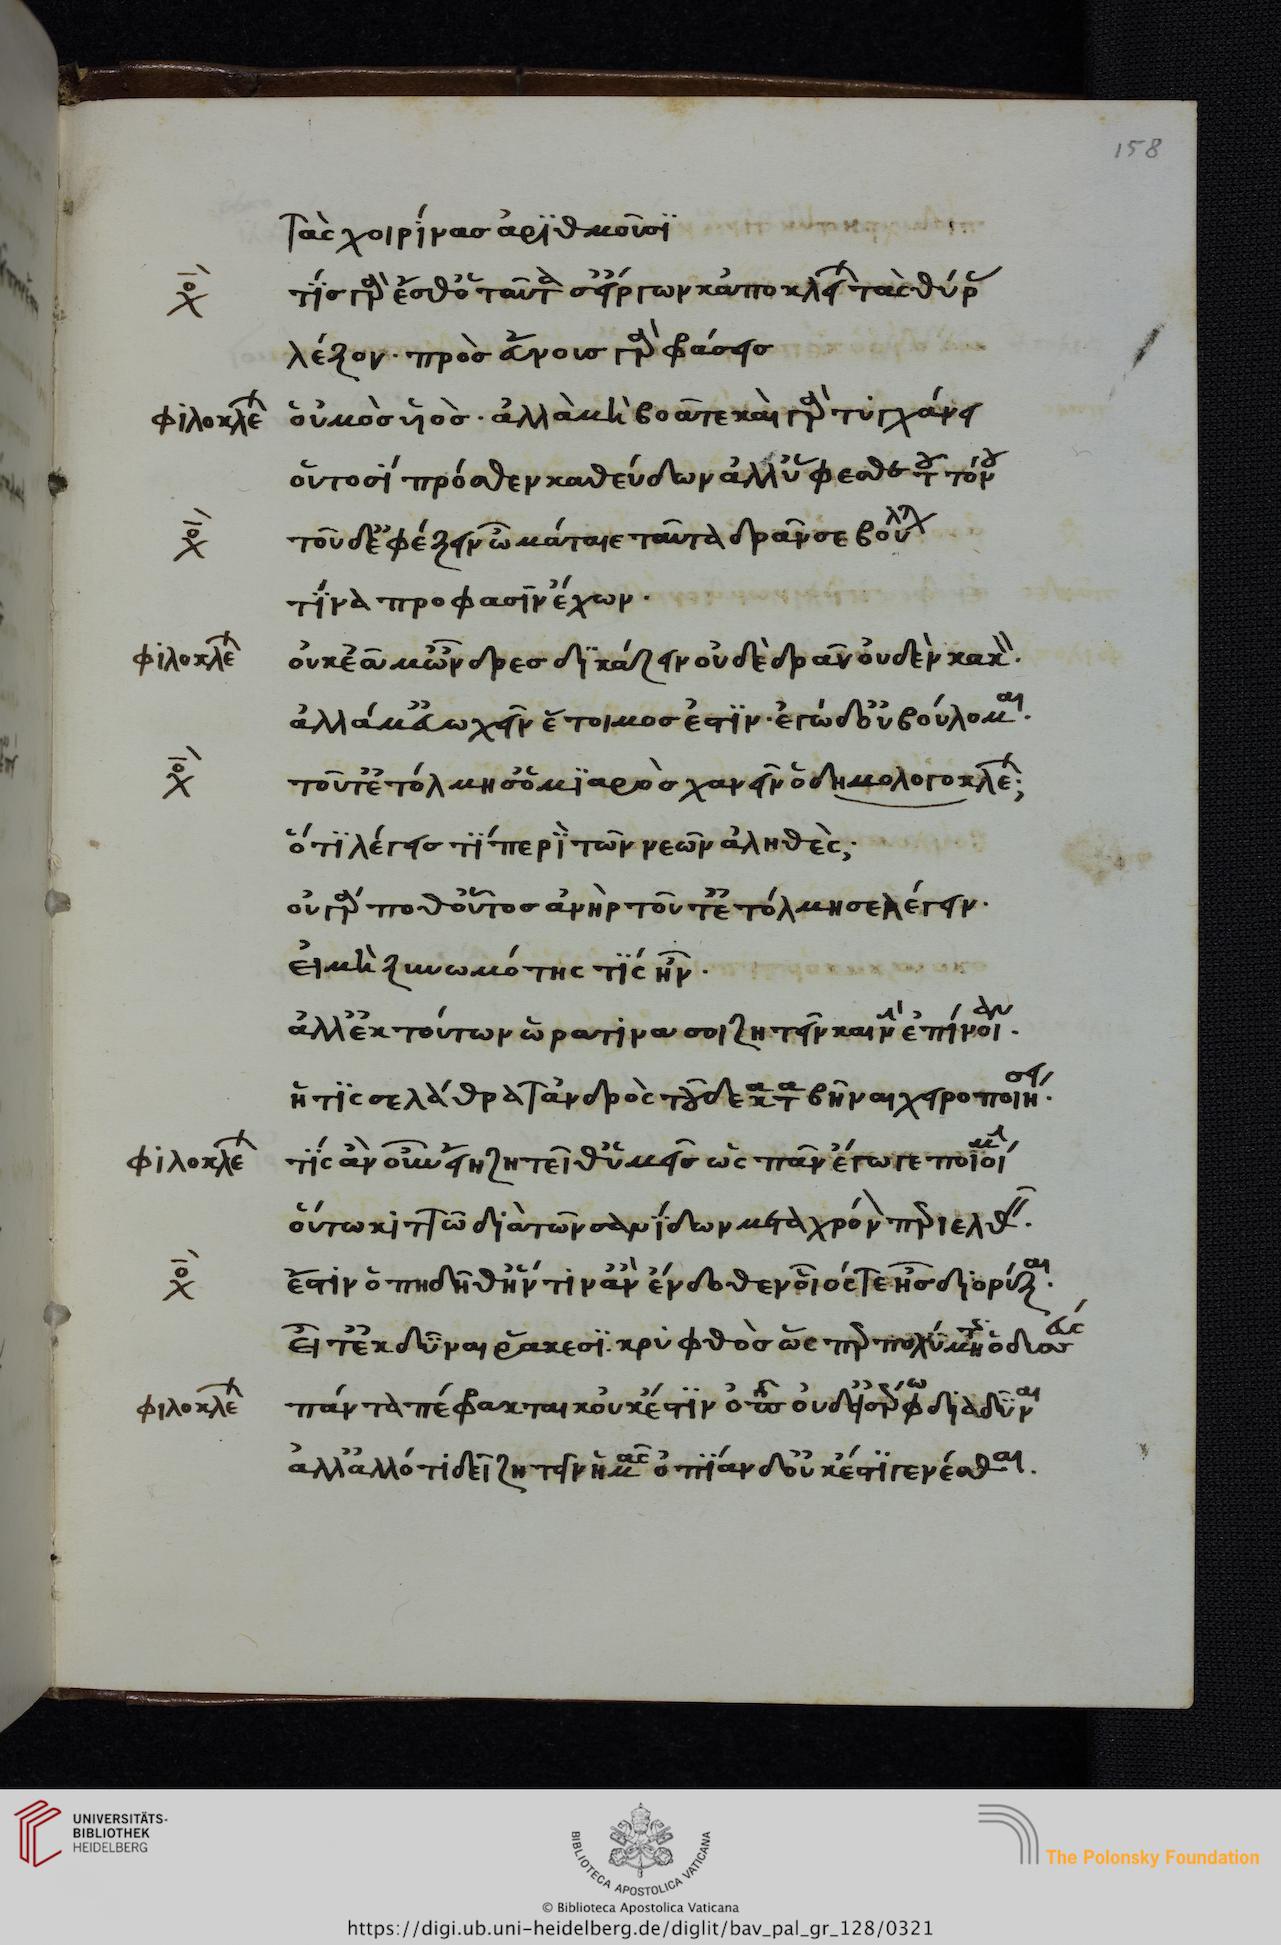 158
τὰς χοιρίνας ἀριθμοῦσι
χο τίς γὰρ ἔσθ' ὁ ταῦτά σ' εἵργων κἀποκλεί τὰς θύρ
λέξον· πρὸς εὔνοις γὰρ φράσεις
φιλοκλέ οὑμὸς υἱὸς· ἀλλὰ μὴ βοᾶτε καὶ γὰρ τυγχάνει
οὑτοσί πρόσθεν καθεύδων ἀλλ' ὕφεσθε τοῦ τόνου
χο τοῦ δ' ἐφέξειν ὦ μάταιε ταῦτα δρᾶν σε βούλ
τίνα προφασὶν ἔχων·
φιλοκλέ οὐκ ἐᾶ μ' ὦνδρες δικάζειν οὐδὲ δρᾶν οὐδὲν κακὸν·
ἀλλά μ' εὐωχεῖν ἕτοιμος ἐστὶν· ἐγὼ δ' οὐ βούλομαι·
χο τοῦτ' ἐτόλμησ' ὁ μιαρὸς χανεῖν ὁ δημολογοκλέ;
ὅτι λέγεις τί περὶ τῶν νεῶν ἀληθὲς;
οὐ γάρ ποθ' οὗτος ἀνὴρ τοῦτ' ἐτόλμησε λέγειν·
εἰ μὴ ξυνωμότης τίς ἦν·
ἀλλ' ἐκ τούτων ὥρα τινα σοι ζητεῖν καινὴν ἐπίνοιαν·
ἥτις σε λάθρα τἀνδρὸς τοῦδε καταβῆναι χειροποιήσει·
φιλοκλέ τίς ἂν οὖν εἴη ζητεῖθ' ὑμεῖς ὡς πᾶν ἔγωγε ποιοίμ
οὕτω κιττῶ διὰ τῶν σανίδων μετὰ χρόνὸν περιελθεῖν·
χο ἔστιν ὀπὴ δῆθ' ἥντιν' ἂν ἔνδοθεν οἷός τε ἦς διορίξαι·
εἶτ' ἐκδῦναι ῥάκεσι· κρυφθὸς ὥς περ πολύμητις ὁδισεύς
φιλοκλέ πάντα πέφρακται κοὐκ ἔστιν ὀπῆς οὐδ' εἰ σέρφω διαδῦναι
ἀλλ' ἄλλό τι δεῖ ζητεῖν ἡμᾶς ὀπίαν δ' οὐκ ἔστι γενέσθαι·
UNIVERSITÄTS-
BIBLIOTHEK
HEIDELBERG
BIBLIOTECA APOSTOLICA VATICANA
The Polonsky Foundation
© Biblioteca Apostolica Vaticana
https://digi.ub.uni-heidelberg.de/diglit/bav_pal_gr_128/0321